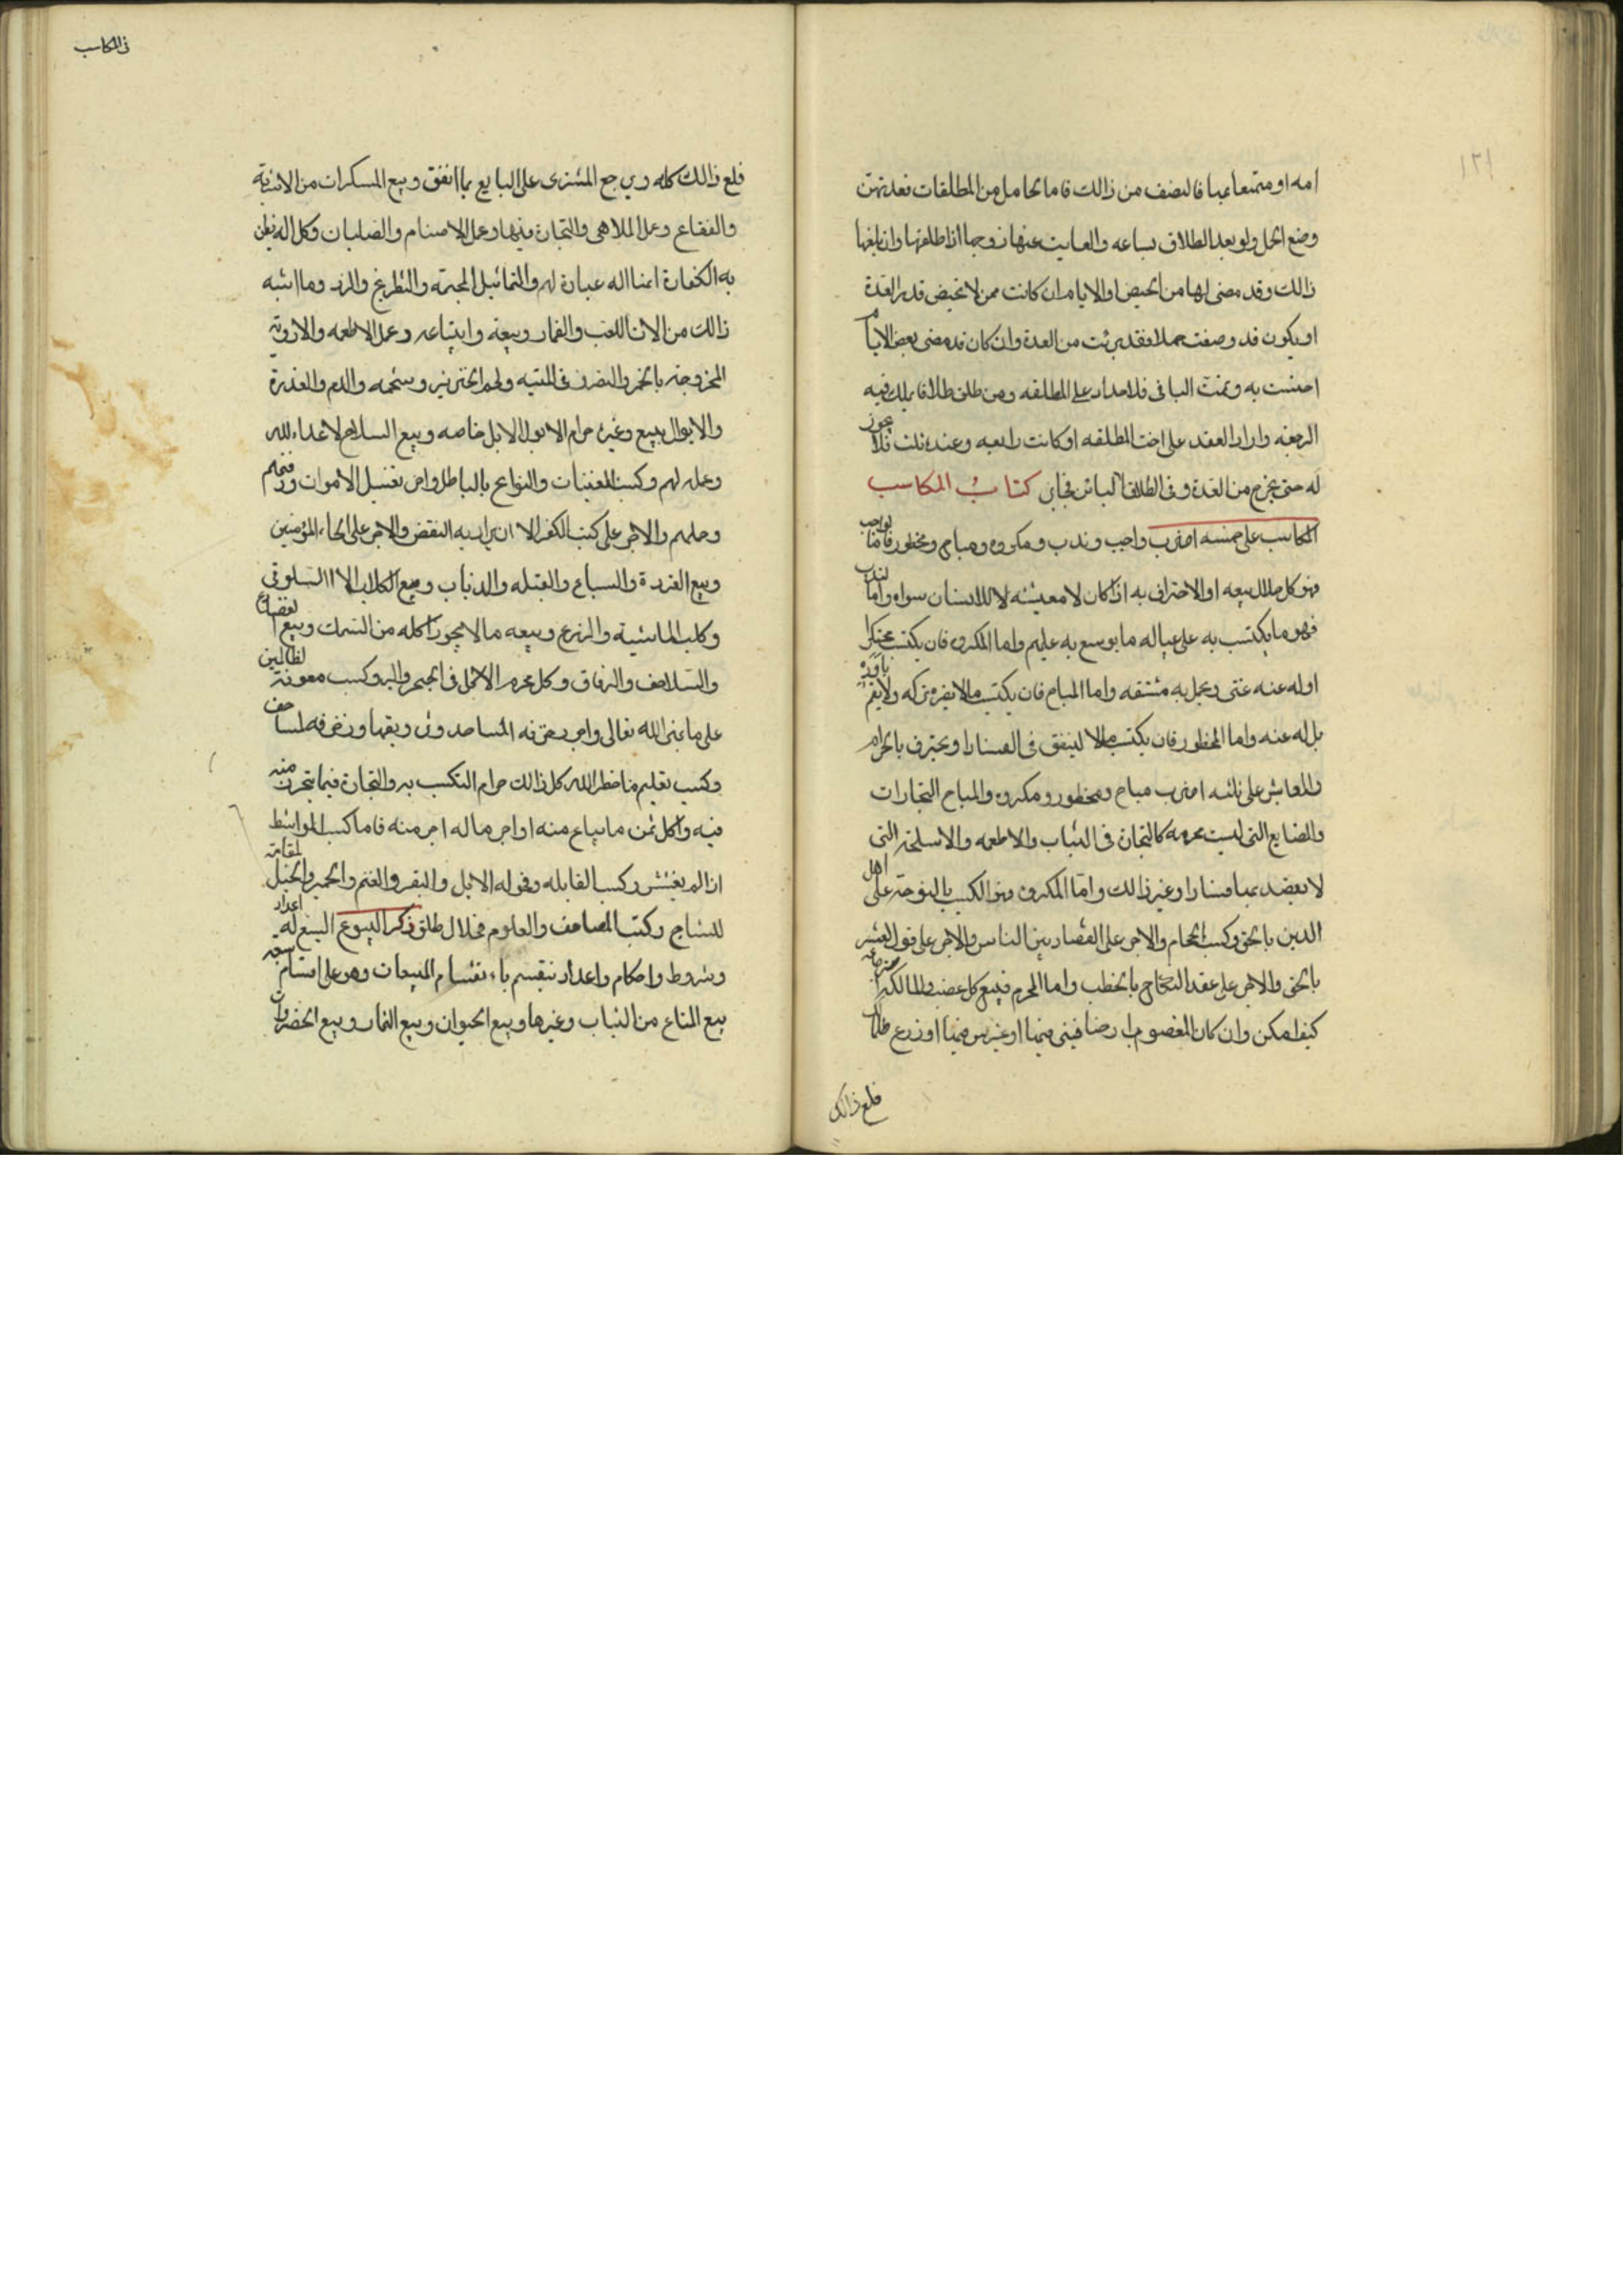 ١٢١
امه او متمتعا بها فالنصف من ذالك فاما الحامل من المطلقات فعدتهن
وضع الحمل ولو بعد الطلاق بساعه والغايب عنها زوجها اذا طلقها وان بلغها
ذالك وقد مضى لها من الحيض او الايام ان كانت ممن لا تحيض قدر العدة
او يكون قد وضعت حملا فقد برئت من العدة وان كان قد مضى بعض الايام
احتسبت به وتمت الباقى فلا حداد على المطلقه ومن طلق طلاقا يملك فيه
الرجعه واراد العقد على اخت المطلقه او كانت رابعه وعنده ثلث فلا يجوز
له حتى تخرج من العدة وفى الطلاق البائن فجايز كتاب المكاسب
المكاسب على خمسه اضرب واجب وندب ومكروه ومباح ومحظور فاما الواجب
فهو كل حلال بيعه او الاحتراف به اذا كان لا معيشه للانسان سواه واما الندب
فهو ما يكتسب به على عياله ما يوسع به عليهم واما المكروه فان يكتسب محتكرا
او له عنه غنى ويحمل به مشقه واما المباح فان يكتسب ما لا يضره تركه ولا يقيم باوده
بل له عنه واما المحظور فان يكتسب مالا لينفق فى الفساد او يحترف بالحرام
والمعايش على ثلثه اضرب مباح ومحظور ومكروه والمباح التجارات
والصنايع التى ليست محرمه كالتجارة فى الثياب والاطعمه والاسلحة التى
لا يعضد بها فسادا وغير ذالك واما المكروه فهو الكسب بالنوحة على اهل
الدين بالحق وكسب الحجام والاجر على القضاء بين الناس والاجر على قول الشعر
بالحق والاجر على عقد النكاح بالخطب واما المحرم فبيع كل غصب والمالك
كيف امكن وان كان المغصوب ارضا فبنى فيها او غرس فيها او زرع فللمالك
قلع ذالك
فى المكاسب
قلع ذالك كله ويرجع المشترى على البايع بما انفق وبيع المسكرات من الاشربة
والفقاع وعمل الملاهى والتجارة فيها وعمل الاصنام والصلبان وكل اله يظن
به الكفارة انها اله عبادة لهم والتماثيل المجسمة والشطرنج والنرد وما اشبه
ذالك من الات اللعب والقمار وبيعه وابتياعه وعمل الاطعمه والادوية
الممزوجة بالخمر والتصرف فى الميتيه ولحم الخنزير وشحمه والدم والعذرة
والابوال ببيع وغيره حرام الا بول الابل خاصه وبيع السلاح لاعداء الله
وعمله لهم وكسب المغنيات والنوائح بالباطل واجر تغسيل الاموات ودفنهم
وحملهم والاجر على كتب الكفر الا ان يراد به النقض والاجر على هجاء المؤمنين
وبيع القردة والسباع والفيله والدباب وبيع الكلاب الا السلوقى
وكلب الماشية والزرع وبيعه ما لا يجوز اكله من السمك وبيع الضفادع
والسلاحف والرقاق وكل محرم الاكل فى البحر والبر وكسب معونة الظالمين
على ما نهى الله تعالى واجر زخرفه المساجد وتزويقها وزخرفه المصاحف
وكسب تعليم ما حظر الله كل ذالك حرام التكسب به والتجارة فيما يتحرز منه
فيه واكل ثمن ما يباع منه او اجر ما له اجر منه فاما كسب المواشط
اذا لم يغششن وكسب القابله وفحوله الابل والبقر والغنم والحمير والخيل المقامة
للنتاج وكتب المصاحف والعلوم فحلال طلق ذكر البيوع البيع له اعداد
وشروط واحكام واعداده تنقسم باء نقسام المبيعات وهو على اقسام سبعه
بيع المتاع من الثياب وغيرها وبيع الحيوان وبيع الثمار وبيع الخضراوات